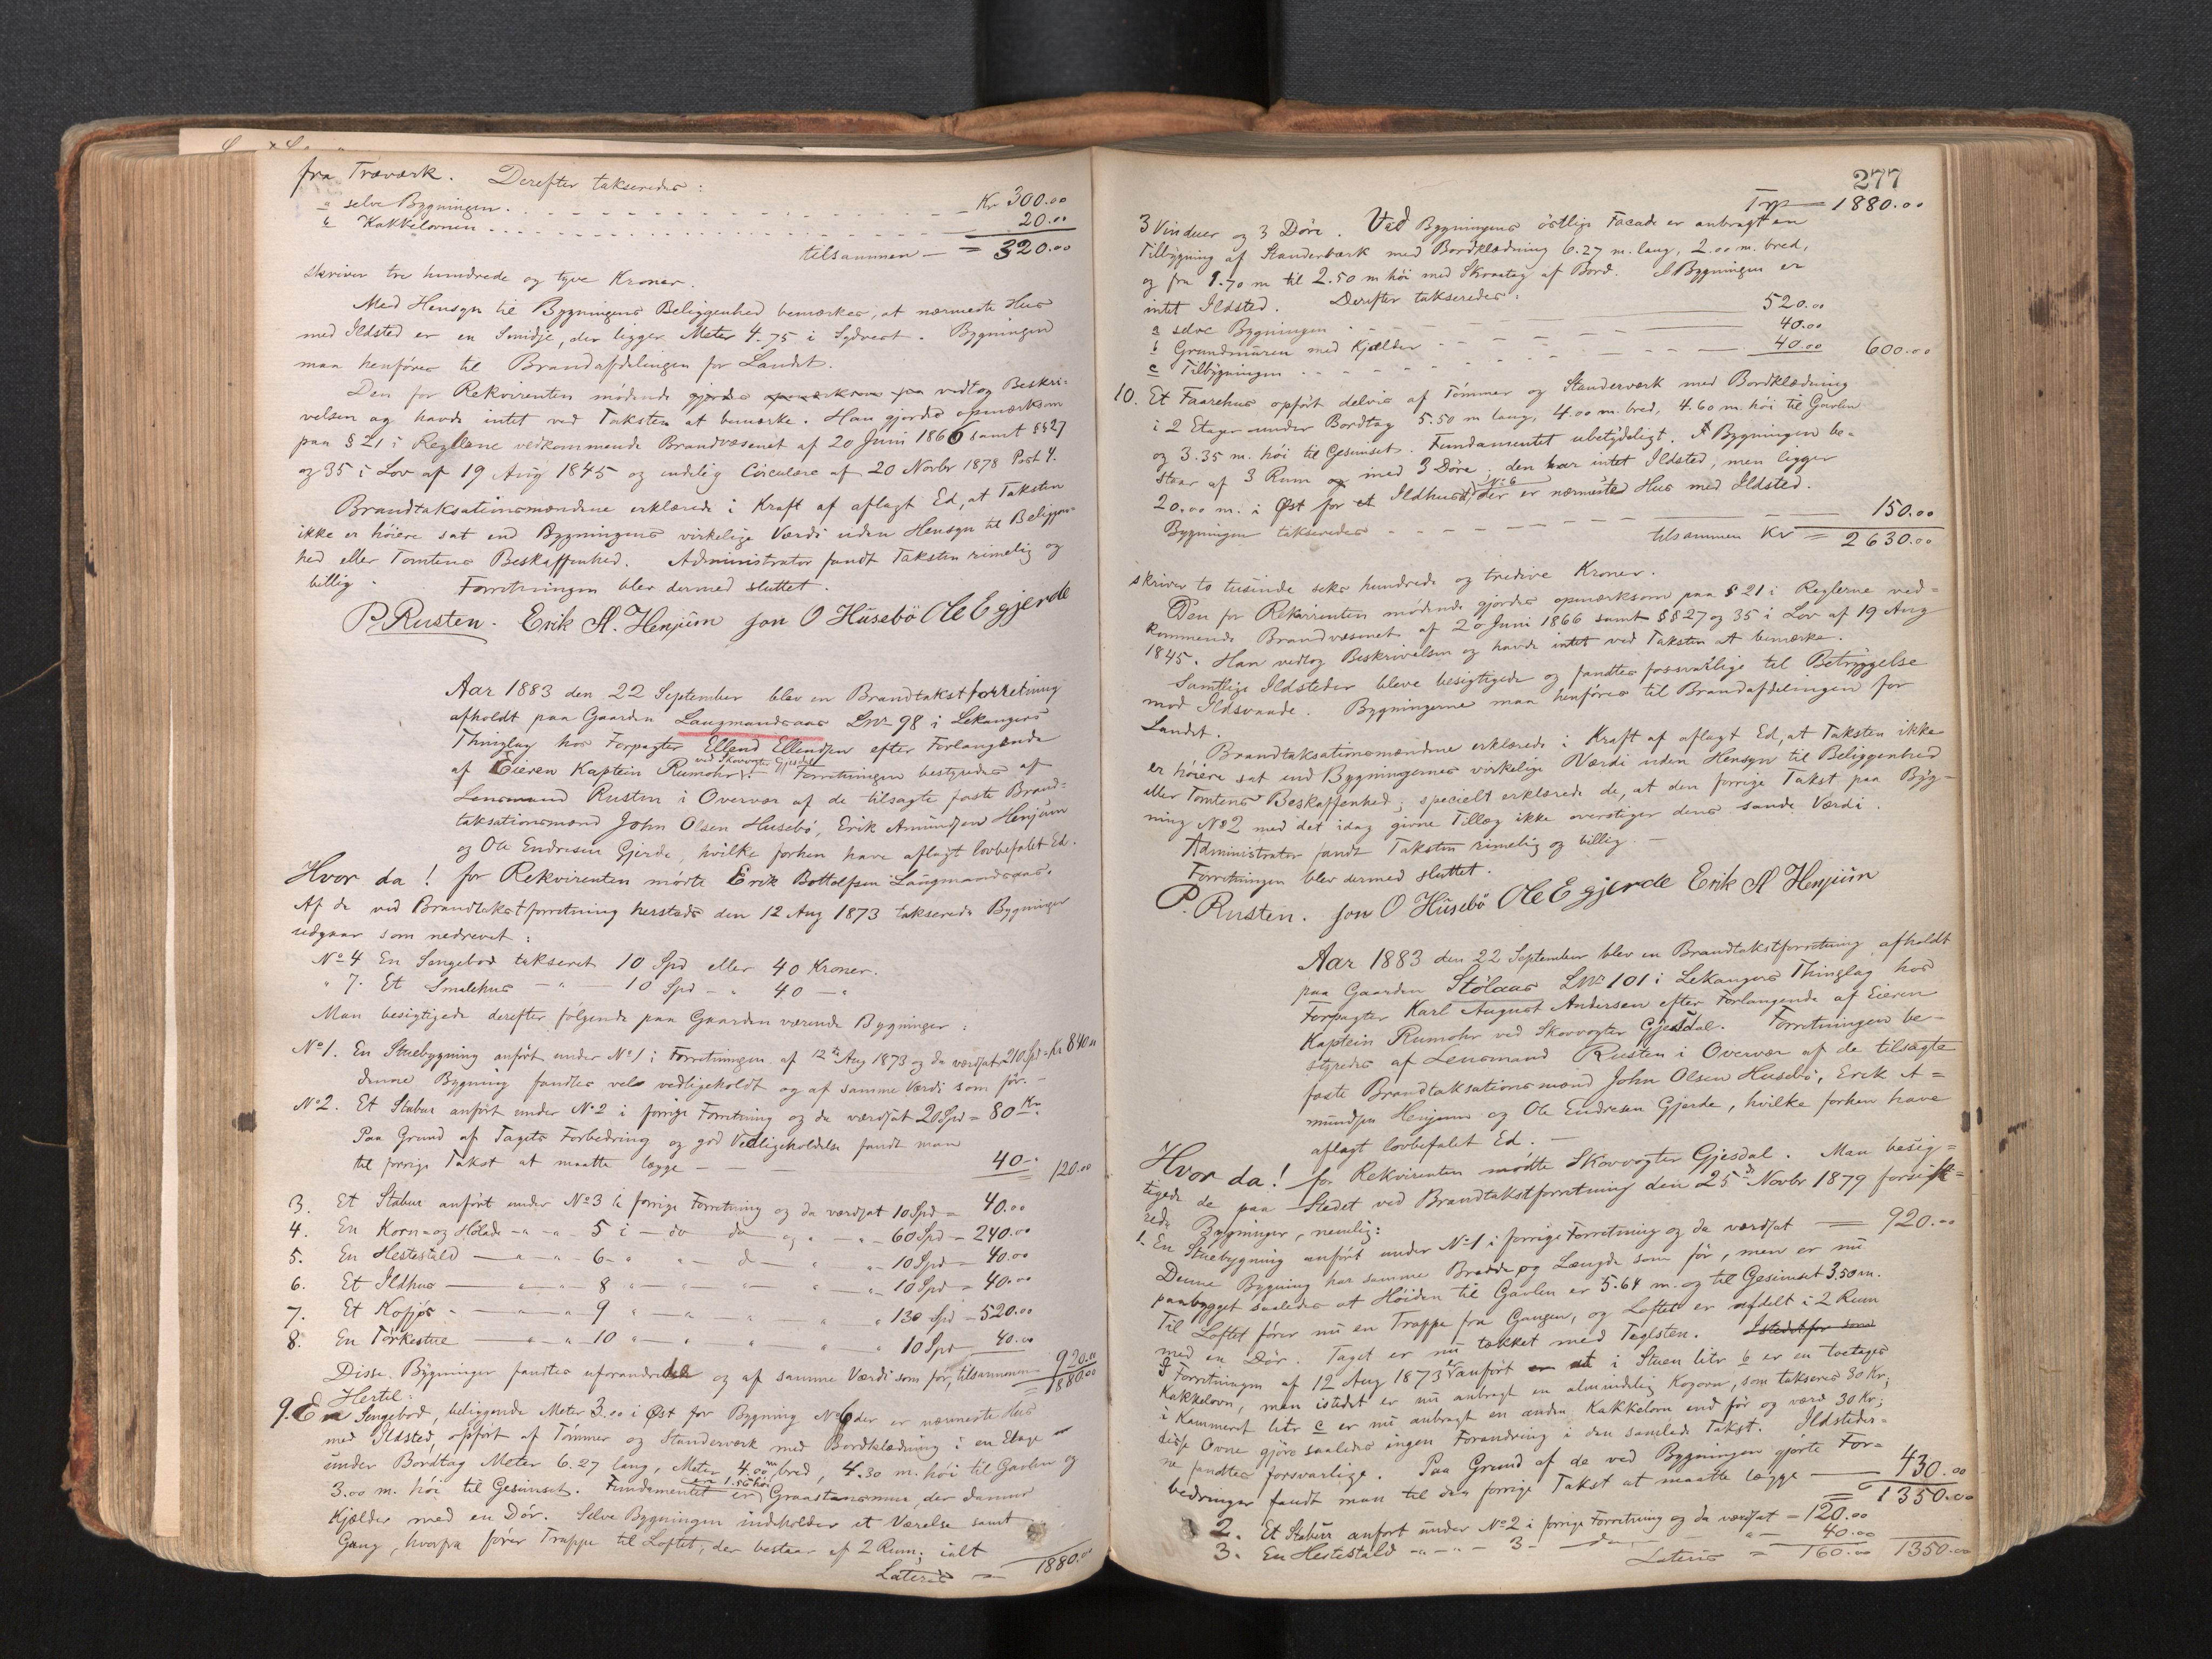 fra Træværk. Derefter takseredes:
a selve Bygningen . . . Kr 300.00
b Kakkelovnen . . . 20.00
tilsammen — = 320.00
skriver tre hundrede og tyve Kroner.
Med Hensyn til Bygningens Beliggenhed bemærkes, at nærmeste Hus
med Ildsted er en Smidje, der ligger Meter 4.75 i Sydvest. Bygningen
maa henføres til Brandafdelingen for Landet.
Den for Rekvirenten mødende vedtog Beskri-
velsen og havde intet ved Taksten at bemærke. Han gjordes opmærksom
paa § 21 i Reglerne vedkommende Brandvæsenet af 20 Juni 1866 samt §§ 27
og 35 i Lov af 19 Aug 1845 og endelig Circulære af 20 Novbr 1878 Post 4.
Brandtaksationsmændene erklærede i Kraft af aflagt Ed, at Taksten
ikke er høiere sat end Bygningens virkelige Værdi uden Hensyn til Beliggen-
hed eller Tomtens Beskaffenhed. Administrator fandt Taksten rimelig og
billig. Forretningen blev dermed sluttet.
P. Rusten. Erik A. Henjum Jon O Husebö Ole E gjerde
Aar 1883 den 22 September blev en Brandtakstforretning
afholdt paa Gaarden Laugmandsaas LNr 98 i Lekangers
Thinglag hos Forpagter Ellend Ellendsen efter Forlangende
af Eieren Kaptein Rumohr ved Skovvogter Gjesdal. Forretningen bestyredes af
Lensmand Rusten i Overvær af de tilsagte faste Brand-
taksationsmænd John Olsen Husebö, Erik Amundsen Henjum
og Ole Endresen Gjerde, hvilke forhen have aflagt lovbefalet Ed.
Hvor da! for Rekvirenten mødte Erik Bottolfsen Laugmandsaas.
Af de ved Brandtakstforretning hersteds den 12 Aug 1873 takserede Bygninger
udgaar som nedrevet:
No 4 En Sengebod takseret 10 Spd eller 40 Kroner.
" 7. Et Smalehus — " — 10 Spd — " 40 — "
Man besigtigede derefter følgende paa Gaarden værende Bygninger:
No 1. En Stuebygning anført under No 1 i Forretningen af 12te Aug 1873 og da værdsat 210 Spd = Kr 840 "
denne Bygning fandtes vel vedligeholdt og af samme Værdi som før. —
No 2. Et Stabur anført under No 2 i forrige Forretning og da værdsat 20 Spd = 80 Kr.
Paa Grund af Tagets Forbedring og god Vedligeholdelse fandt man
til forrige Takst at maatte lægge — — — 40 — 120.00
3. Et Stabur anført under No 3 i forrige Forretning og da værdsat 10 Spd = 40.00
4. En Korn- og Hölade — " — " — 5 i — do do og " — " — 60 Spd — 240.00
5. En Hestestald — " — " — 6 — " " — d — " " — 10 Spd — 40.00
6. Et Ildhus — " — " 8 " — " — " " — 10 Spd — 40.00
7. Et Kofjøs — " — " 9 " — " — " " 130 Spd — 520.00
8. En Tørkestue — " — " 10 " — " " " 10 Spd — 40.00
Disse Bygninger fandtes uforandrede og af samme Værdi som før, tilsammen 920.00
= 1880.00
Hertil:
9. En Sengebod, beliggende Meter 3.00 i Øst for Bygning No 6 der er nærmeste Hus
med Ildsted, opført af Tømmer og Standerværk med Bordklædning i en Etage
under Bordtag Meter 6.27 lang, Meter 4.00 m bred, 4.30 m. høi til Gavlen og
3.00 m. høi til Gesimset. Fundamentet er en 1.56 høi Graastensmur, der danner
Kjælder med en Dør. Selve Bygningen indeholder et Værelse samt
Gang, hvorfra fører Trappe til Loftet, der bestaar af 2 Rum; ialt
Lateris = 1880.00
277
Trp — 1880.00
3 Vinduer og 3 Døre. Ved Bygningens østlige Facade er anbragt en
Tilbygning af Standerværk med Bordklædning 6.27 m. lang, 2.00 m. bred,
og fra 1.70 m til 2.50 m høi med Skraatag af Bord. I Bygningen er
intet Ildsted. Derefter takseredes:
a selve Bygningen . . . 520.00
b Grundmuren med Kjælder . . . 40.00
c Tilbygningen . . . 40.00 600.00
10. Et Faarehus opført delvis af Tømmer og Standerværk med Bordklædning
i 2 Etager under Bordtag 5.50 m lang, 4.00 m. bred, 4.60 m. høi til Gavlen
og 3.35 m. høi til Gesimset. Fundamentet ubetydeligt. Bygningen be-
staar af 3 Rum med 3 Døre; den har intet Ildsted, men ligger
20.00 m. i Øst for et Ildhus No 6 der er nærmeste Hus med Ildsted.
Bygningen takseredes — — — 150.00
tilsammen Kr = 2630.00
skriver to tusinde seks hundrede og tredive Kroner.
Den for Rekvirenten mødende gjordes opmærksom paa § 21 i Reglerne ved-
kommende Brandvæsenet af 20 Juni 1866 samt §§ 27 og 35 i Lov af 19 Aug
1845. Han vedtog Beskrivelsen og havde intet ved Taksten at bemærke.
Samtlige Ildsteder bleve besigtigede og fandtes forsvarlige til Betryggelse
mod Ildsvaade. Bygningerne maa henføres til Brandafdelingen for
Landet.
Brandtaksationsmændene erklærede i Kraft af aflagt Ed, at Taksten ikke
er høiere sat end Bygningernes virkelige Værdi uden Hensyn til Beliggenhed
eller Tomtens Beskaffenhed; specielt erklærede de, at den forrige Takst paa Byg-
ning No 2 med det idag givne Tillæg ikke overstiger dens sande Værdi.
Administrator fandt Taksten rimelig og billig. —
Forretningen blev dermed sluttet.
P. Rusten. Jon O Husebö Ole E gjerde Erik A Henjum
Aar 1883 den 22 September blev en Brandtakstforretning afholdt
paa Gaarden Stölaas LNr 101 i Lekangers Thinglag hos
Forpagter Karl August Andersen efter Forlangende af Eieren
Kaptein Rumohr ved Skovvogter Gjesdal. Forretningen be-
styredes af Lensmand Rusten i Overvær af de tilsagte
faste Brandtaksationsmænd John Olsen Husebö, Erik A-
mundsen Henjum og Ole Endresen Gjerde, hvilke forhen have
aflagt lovbefalet Ed. —
Hvor da! for Rekvirenten mødte Skovvogter Gjesdal. Man besig-
tigede de paa Stedet ved Brandtakstforretning den 25de Novbr 1879 forsik-
rede Bygninger, nemlig:
1. En Stuebygning anført under No 1 i forrige Forretning og da værdsat — = 920.00
Denne Bygning har samme Bredde og Længde som før, men er nu
paabygget saaledes at Høiden til Gavlen er 5.64 m. og til Gesimset 3.50 m.
Til Loftet fører nu en Trappe fra Gangen, og Loftet er afdelt i 2 Rum
med en Dør. Taget er nu tækket med Teglsten. Istedetfor som
I Forretningen af 12 Aug 1873 er anført i Stuen litr b er en toetages
Kakkelovn, men istedet er nu anbragt en almindelig Kogovn, som takseres 30 Kr;
i Kammeret litr c er nu anbragt en anden Kakkelovn end før og værd 30 Kr;
disse Ovne gjøre saaledes ingen Forandring i den samlede Takst. Ildsteder-
ne fandtes forsvarlige. Paa Grund af de ved Bygningen gjorte For-
bedringer fandt man til den forrige Takst at maatte lægge — 430.00
= 1350.00
2. Et Stabur anført under No 2 i forrige Forretning og da værdsat = 120.00
3. En Hestestald — " — " — 3 — do — " — 40.00
Lateris = 160.00 1350.00